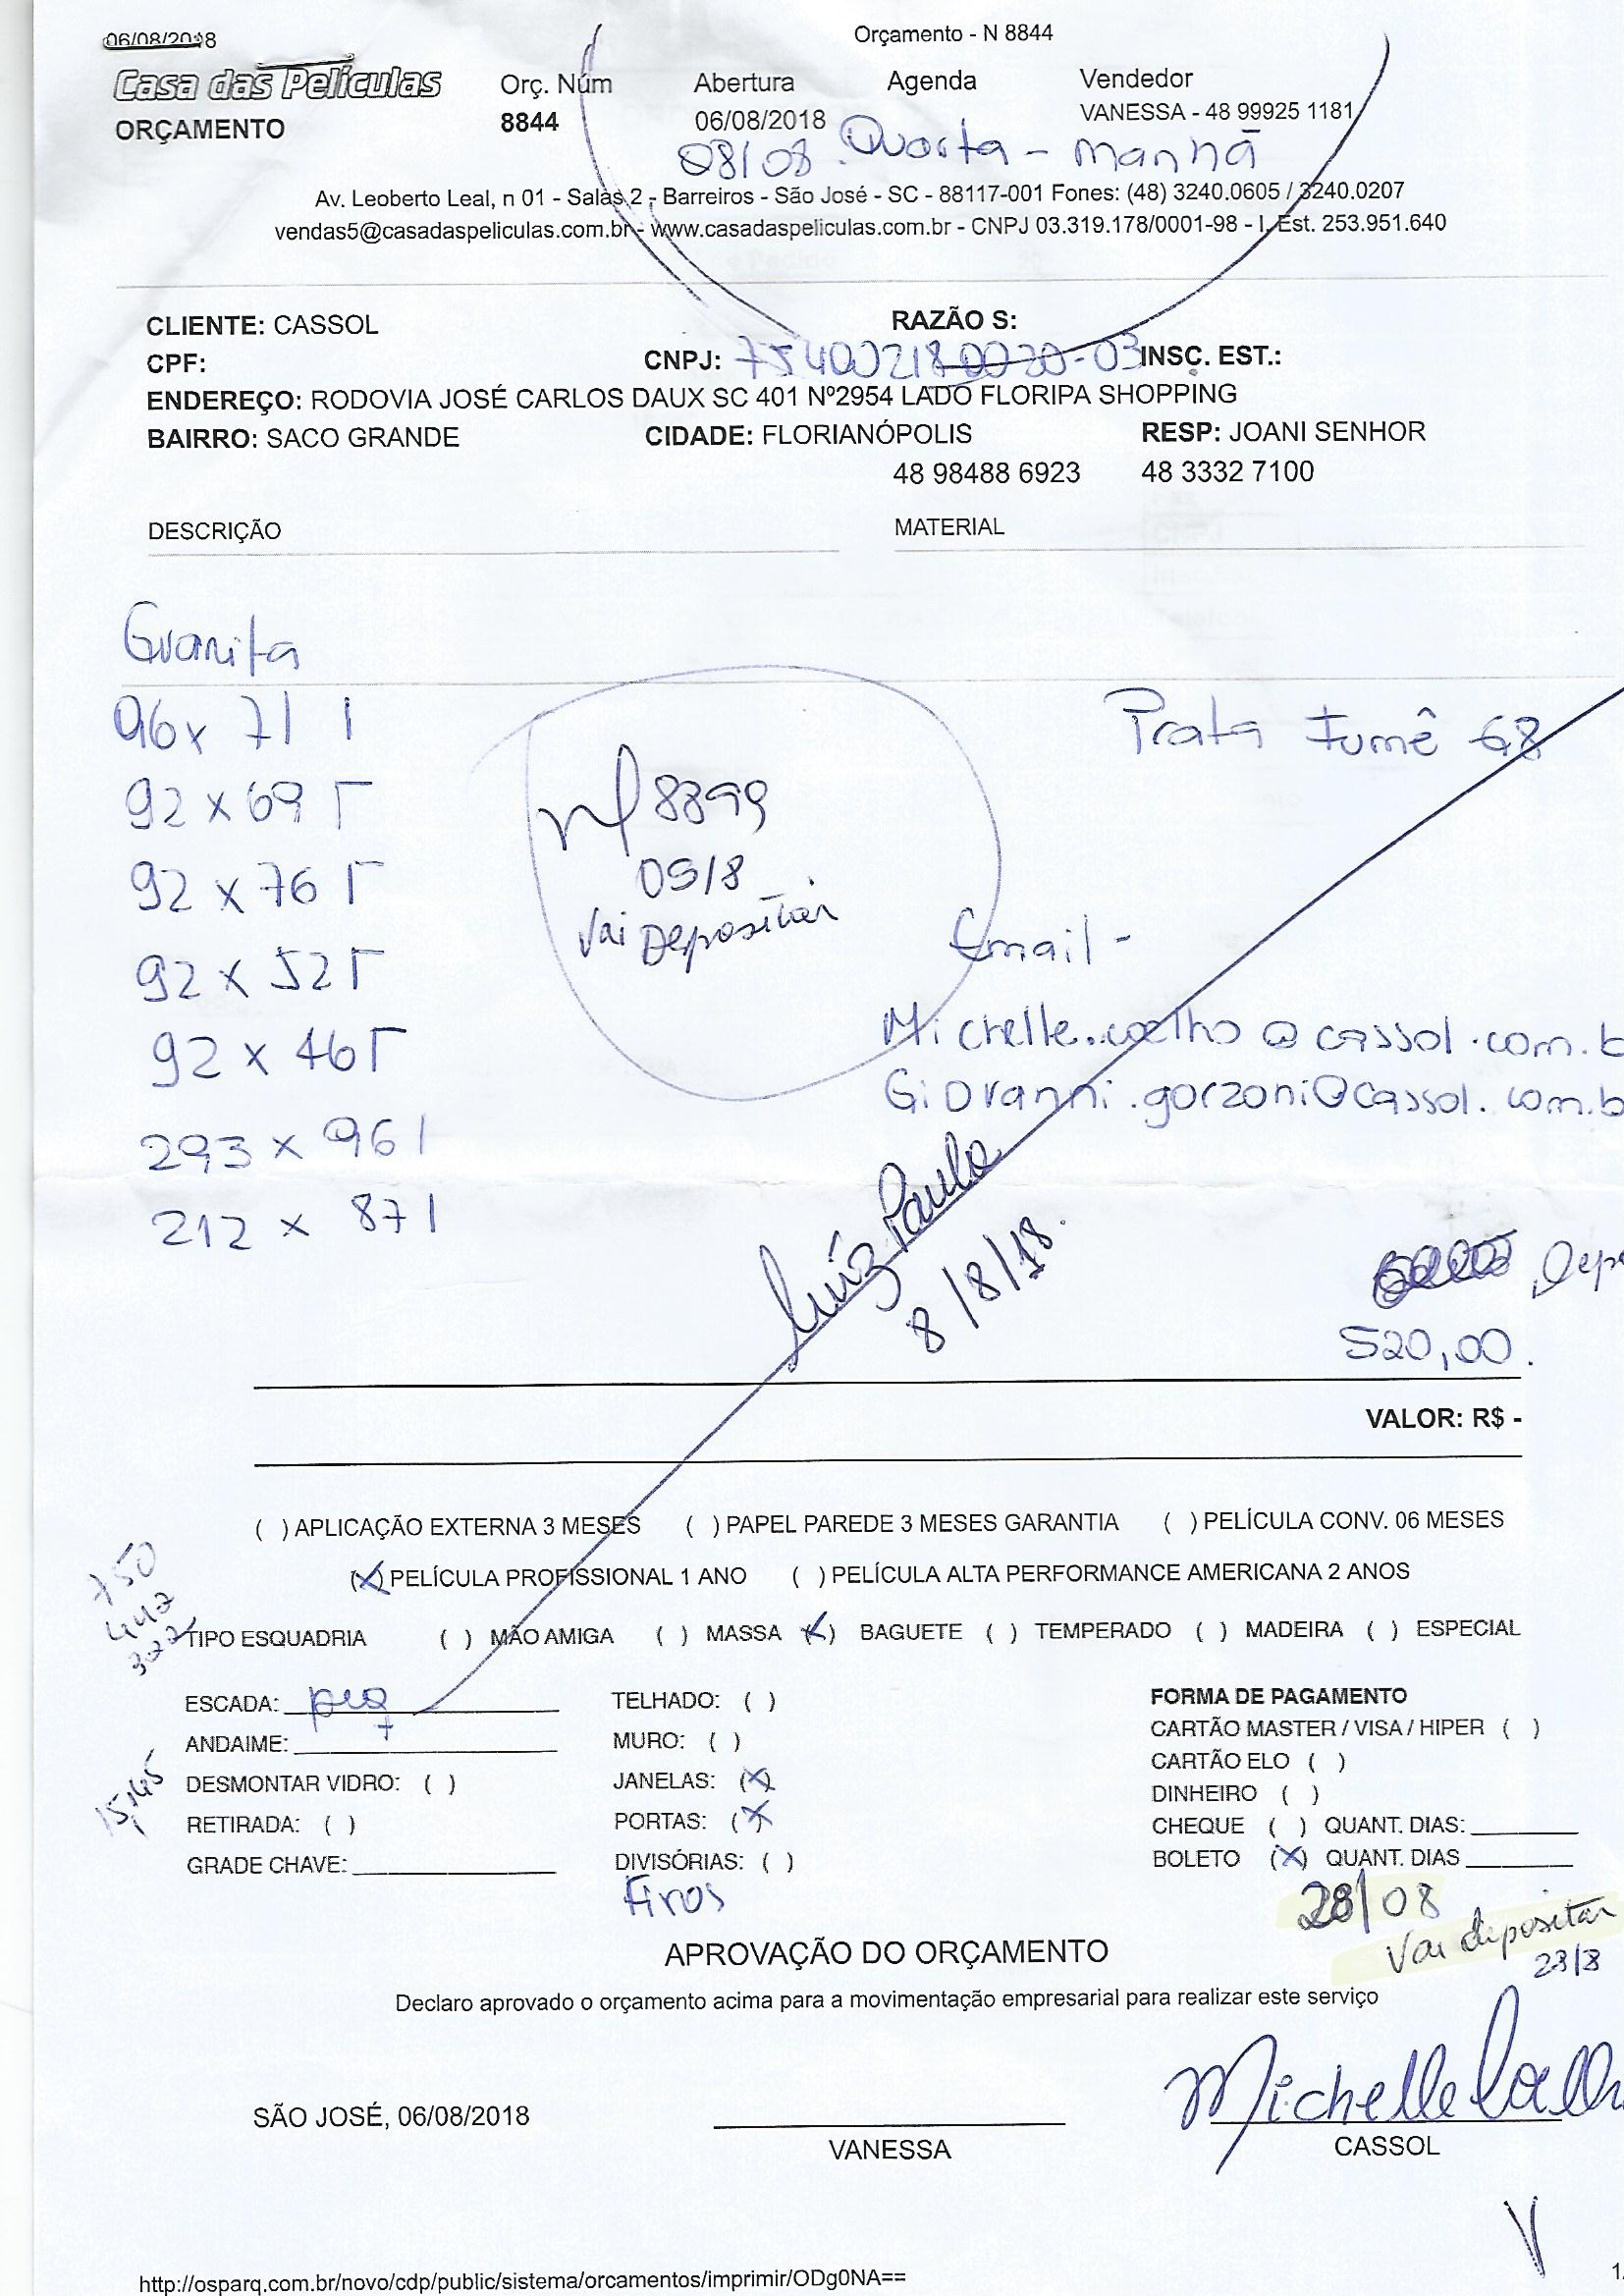 06/08/2018
Orçamento - N 8844
Casa das Películas
ORÇAMENTO
Orç. Núm
8844
Abertura
06/08/2018
Agenda
Vendedor
VANESSA - 48 99925 1181
08/08. Quarta - manhã
Av. Leoberto Leal, n 01 - Salas 2 - Barreiros - São José - SC - 88117-001 Fones: (48) 3240.0605 / 3240.0207
vendas5@casadaspeliculas.com.br - www.casadaspeliculas.com.br - CNPJ 03.319.178/0001-98 - I. Est. 253.951.640
CLIENTE: CASSOL
RAZÃO S:
CPF:
CNPJ: 754002180020-03
INSC. EST.:
ENDEREÇO: RODOVIA JOSÉ CARLOS DAUX SC 401 Nº2954 LADO FLORIPA SHOPPING
BAIRRO: SACO GRANDE
CIDADE: FLORIANÓPOLIS
RESP: JOANI SENHOR
48 98488 6923
48 3332 7100
DESCRIÇÃO
MATERIAL
Guarita
96 x 71 1
92 x 69
92 x 76
92 x 52
92 x 46
293 x 96 1
212 x 87 1
nf 8899
vai Depositar
Prata Fumê
Email -
Michelle.coelho@cassol.com.b
Giovanni.gorzoni@cassol.com.b
Luíz Paulo
8/8/18.
Dep
520,00.
VALOR: R$ -
( ) APLICAÇÃO EXTERNA 3 MESES ( ) PAPEL PAREDE 3 MESES GARANTIA ( ) PELÍCULA CONV. 06 MESES
(X) PELÍCULA PROFISSIONAL 1 ANO ( ) PELÍCULA ALTA PERFORMANCE AMERICANA 2 ANOS
750
TIPO ESQUADRIA ( ) MÃO AMIGA ( ) MASSA (X) BAGUETE ( ) TEMPERADO ( ) MADEIRA ( ) ESPECIAL
ESCADA: peq
ANDAIME:
DESMONTAR VIDRO: ( )
RETIRADA: ( )
GRADE CHAVE:
TELHADO: ( )
MURO: ( )
JANELAS: (X)
PORTAS: (X)
DIVISÓRIAS: ( )
Fixos
FORMA DE PAGAMENTO
CARTÃO MASTER / VISA / HIPER ( )
CARTÃO ELO ( )
DINHEIRO ( )
CHEQUE ( ) QUANT. DIAS:
BOLETO (X) QUANT. DIAS
28/08
Vai depositar
23/8
APROVAÇÃO DO ORÇAMENTO
Declaro aprovado o orçamento acima para a movimentação empresarial para realizar este serviço
SÃO JOSÉ, 06/08/2018
VANESSA
Michelle
CASSOL
http://osparq.com.br/novo/cdp/public/sistema/orcamentos/imprimir/ODg0NA==